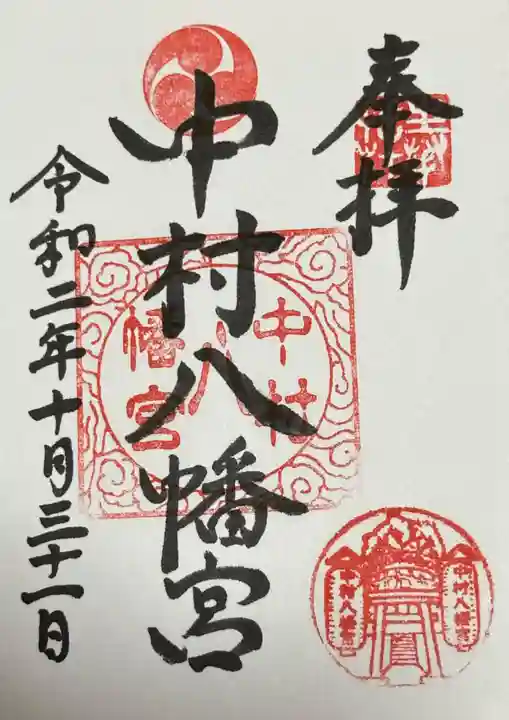 奉拝
中村八幡宮
令和二年十月三十一日
中村
八
幡宮
中村八幡宮
中村八幡宮